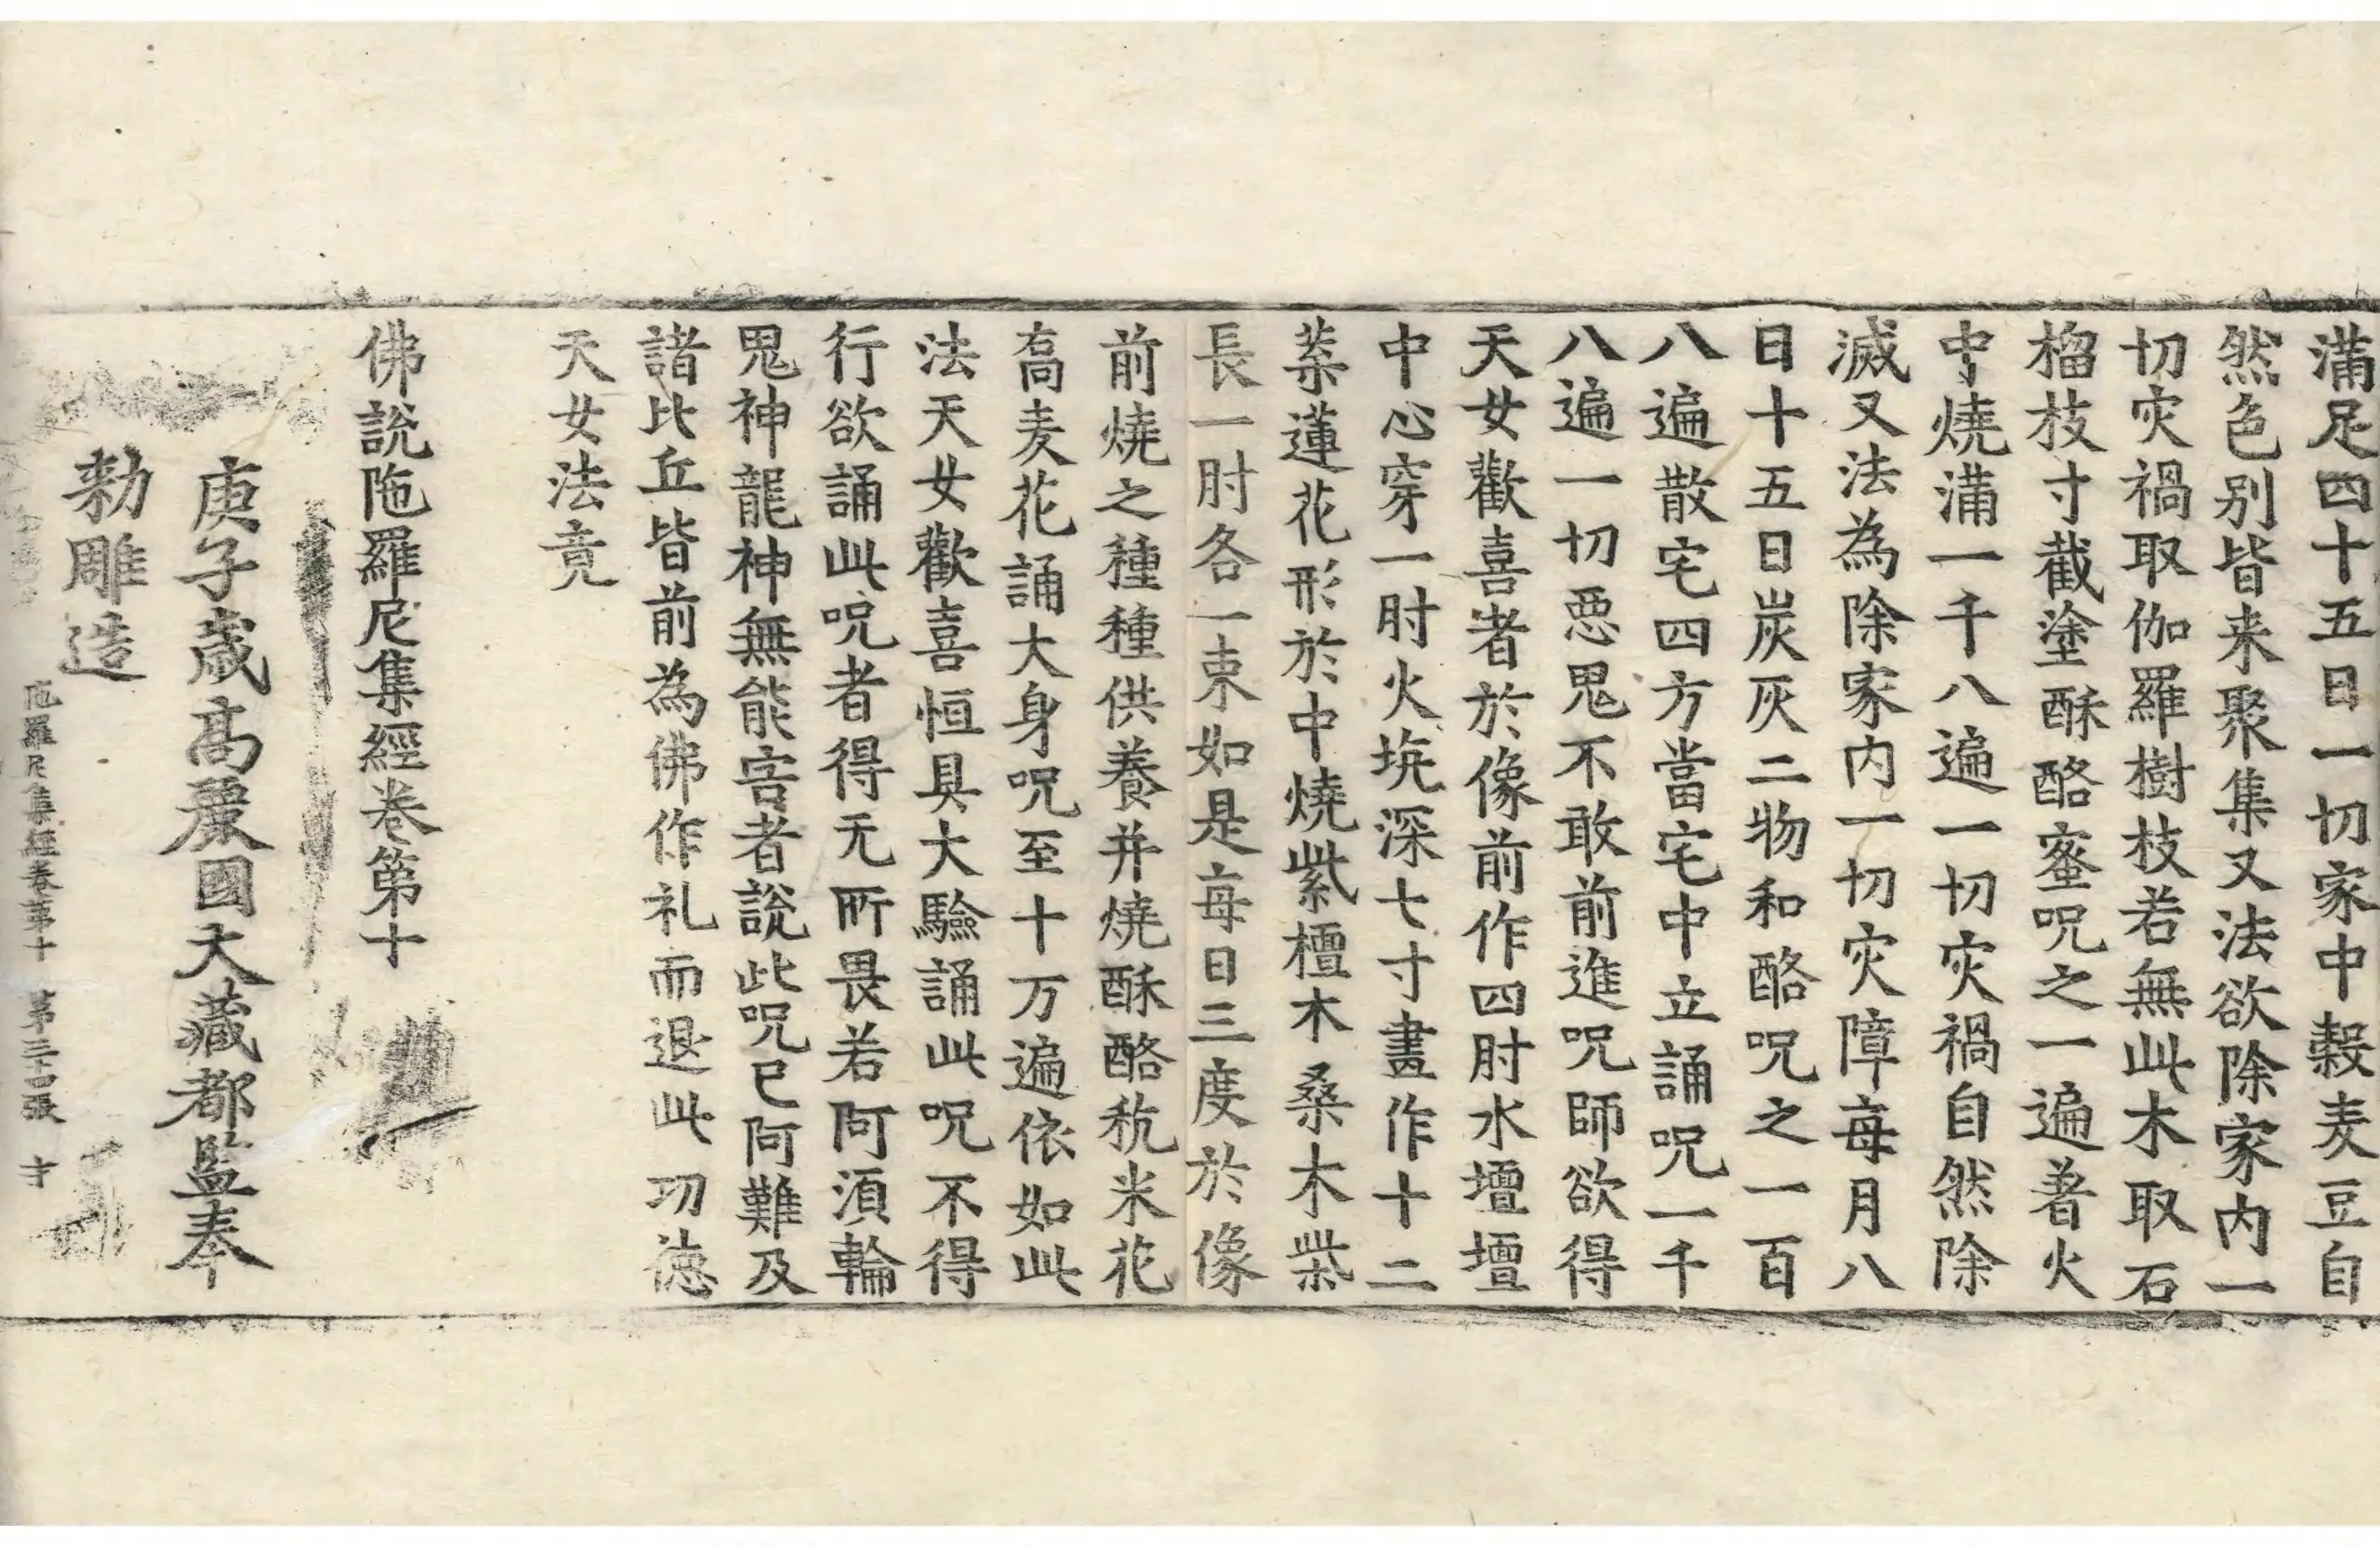 滿足四十五日一切家中穀麦豆自
然色别皆来聚集又法欲除家内一
切灾禍取伽羅樹枝若無此木取石
榴枝寸截塗酥酪蜜呪之一遍著火
中燒滿一千八遍一切灾禍自然除
滅又法為除家内一切灾障每月八
日十五日炭灰二物和酪呪之一百
八遍散宅四方當宅中立誦呪一千
八遍一切惡鬼不敢前進呪師欲得
天女歡喜者於像前作四肘水壇壇
中心穿一肘火坑深七寸畫作十二
葉蓮花形於中燒紫檀木桑木柴
長一肘各一束如是每日三度於像
前燒之種種供養并燒酥酪秔米花
高麦花誦大身呪至十万遍依如此
法天女歡喜恒具大驗誦此呪不得
行欲誦此呪者得无所畏若阿湏輪
鬼神龍神無能害者說此呪已阿難及
諸比丘皆前為佛作礼而退此功德
天女法竟
佛說陁羅尼集經卷第十
庚子歲高麗國大藏都監奉
勑雕造
陁羅尼集經卷第十 第三十四張 才